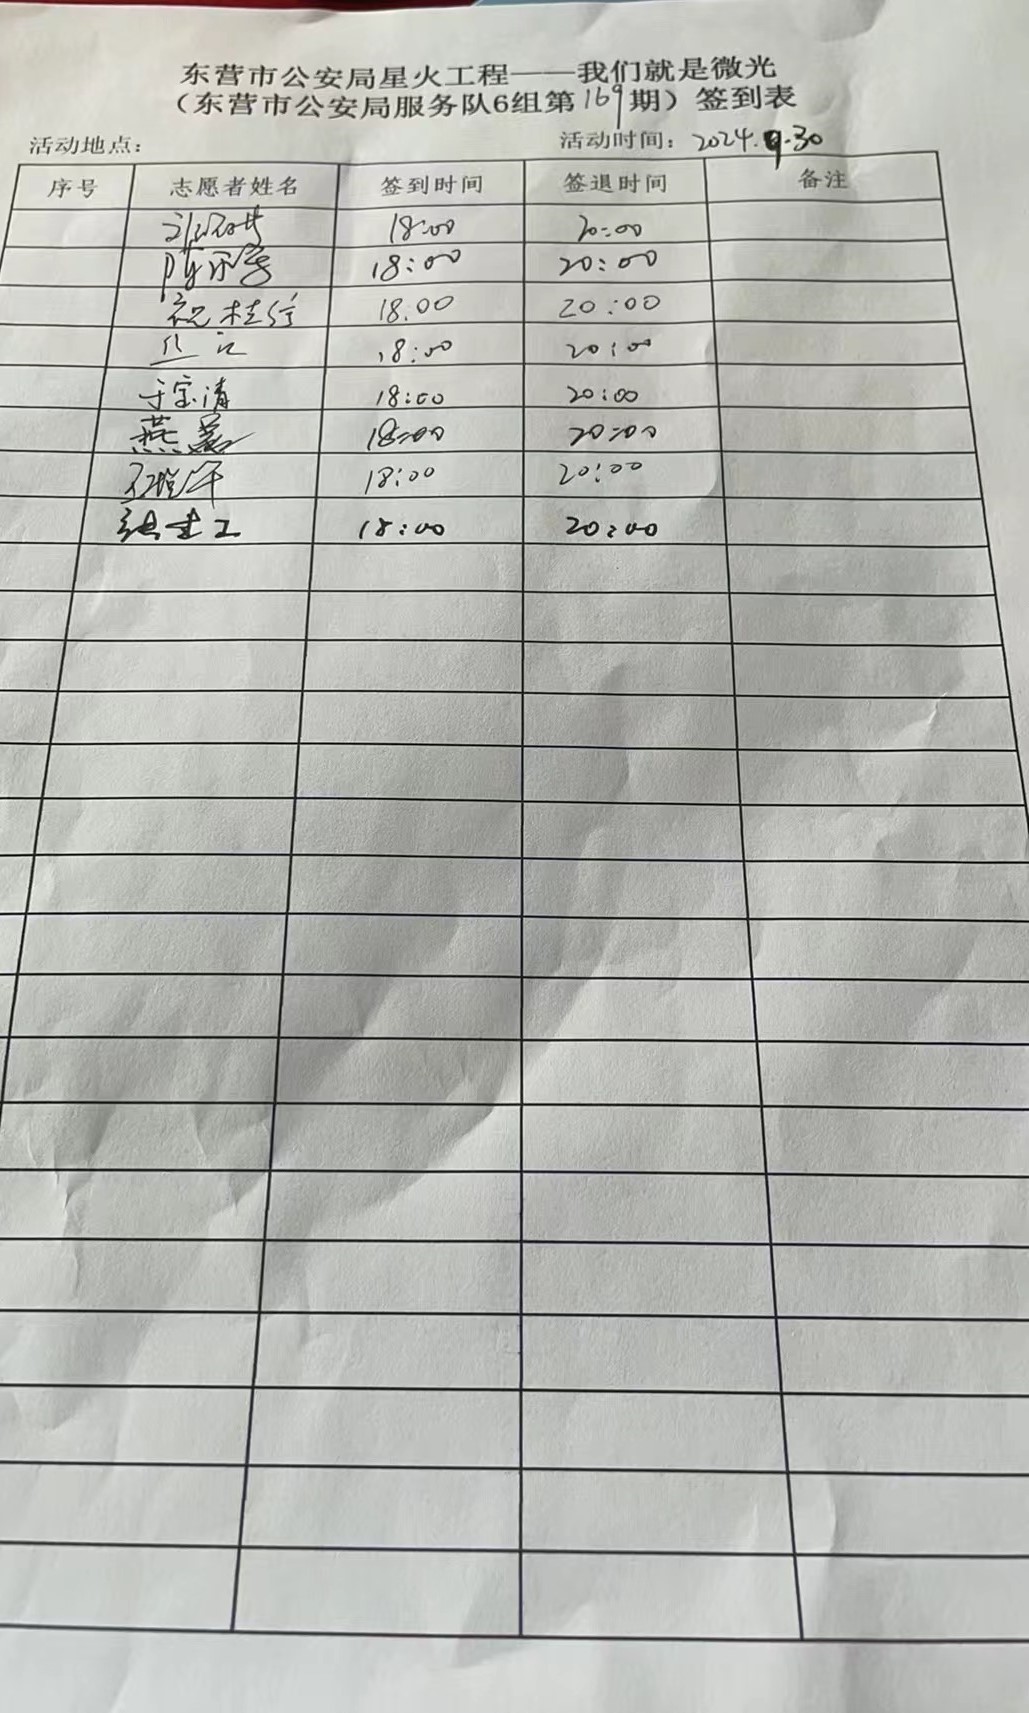 东营市公安局星火工程——我们就是微光
（东营市公安局服务队6组第169期）签到表
活动地点： 活动时间：2024.9.30
序号 志愿者姓名 签到时间 签退时间 备注
18:00 20:00
18:00 20:00
祝桂 18.00 20:00
18:00 20:00
于宝清 18:00 20:00
燕 18:00 20:00
18:00 20:00
张建工 18:00 20:00